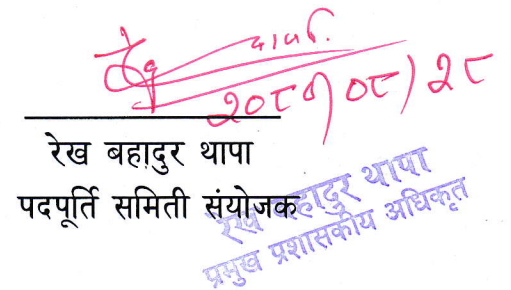 २०८१/०८/२८
रेख बहादुर थापा
पदपूर्ति समिती संयोजक
रेख बहादुर थापा
प्रमुख प्रशासकीय अधिकृत